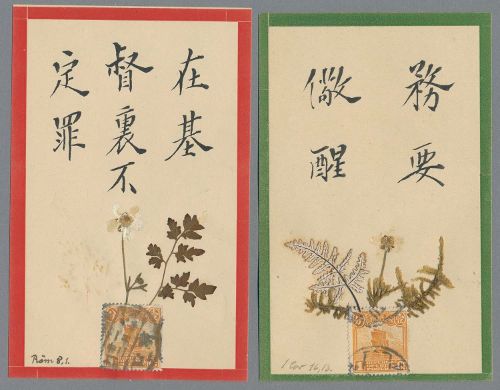 在基
督裏不
定罪
Röm 8.1.
務要
儆醒
1 Cor 16,13.